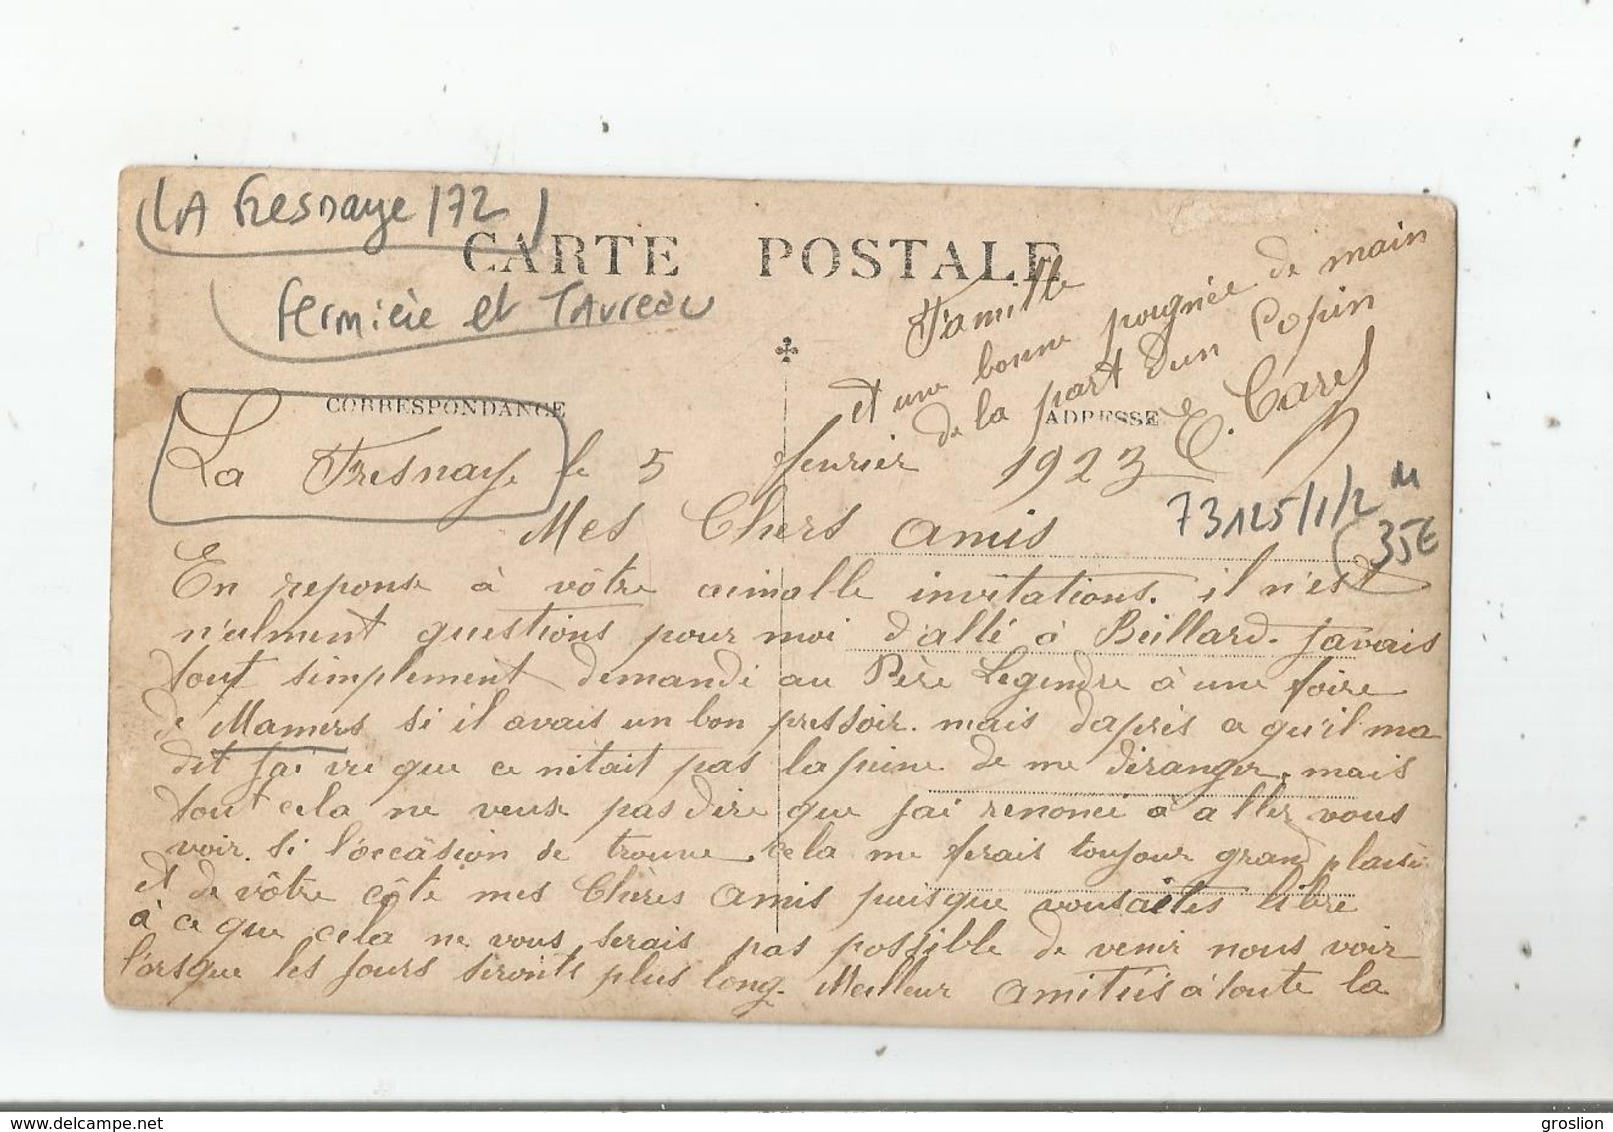 LA Fresnaye / 72
CARTE POSTALE
fermière et TAureau
CORRESPONDANCE
ADRESSE
La Fresnaye le 5 fevrier 1923
73125/1/2 M
35E
Mes Chers amis
En reponse à vôtre aimalle invitations. il n'est
n'ulment questions pour moi d'allé à Beillard. Javais
tout simplement demandé au Père Legendre à une foire
de Mamers si il avais un bon pressoir. mais daprès ce qu'il ma
dit Jai vu que ce nétait pas la peine de me déranger. mais
tout cela ne veux pas dire que Jai renoncé à aller vous
voir. Si l'occâsion se trouve. cela me ferais toujour grand plaisir
et de vôtre côté mes Chères Amis puisque vous aites libre
à ce que cela ne vous serais pas possible de venir nous voir
l'orsque les Jours seronts plus long. Meilleur Amitiés à toute la
Famille
et une bonne poignée de main
de la part d'un Copin
E. Carel
delcampe.net
groslion